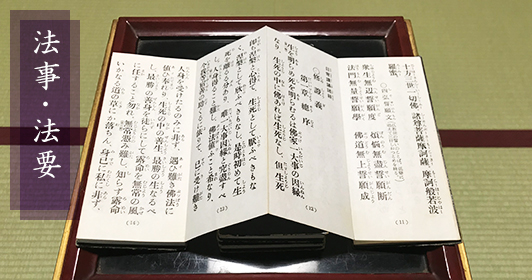 法事・法要
十方三世一切佛 諸尊菩薩摩訶薩 摩訶般若波
羅蜜
四弘誓願文
衆生無邊誓願度 煩惱無盡誓願斷
法門無量誓願學 佛道無上誓願成
(11)
修證義
第一章 總序
生を明らめ死を明らむるは佛家一大事の因縁
なり、生死の中に佛あれば生死なし、但生死
(12)
即ち涅槃と心得て、生死として厭ふべきもな
く、涅槃として欣ふべきもなし、是時初めて生
死を離るる分あり、唯一大事因縁と究盡すべ
し
(13)
人身を受けたるのみに非ず、遇ひ難き佛法に
値ひ奉れり、生死の中の善生、最勝の生なるべ
し、最勝の善身を徒らにして露命を無常の風
に任すること勿れ、無常憑み難し、知らず露命
いかなる道の草にか落ちん、身已に私に非ず、
(14)